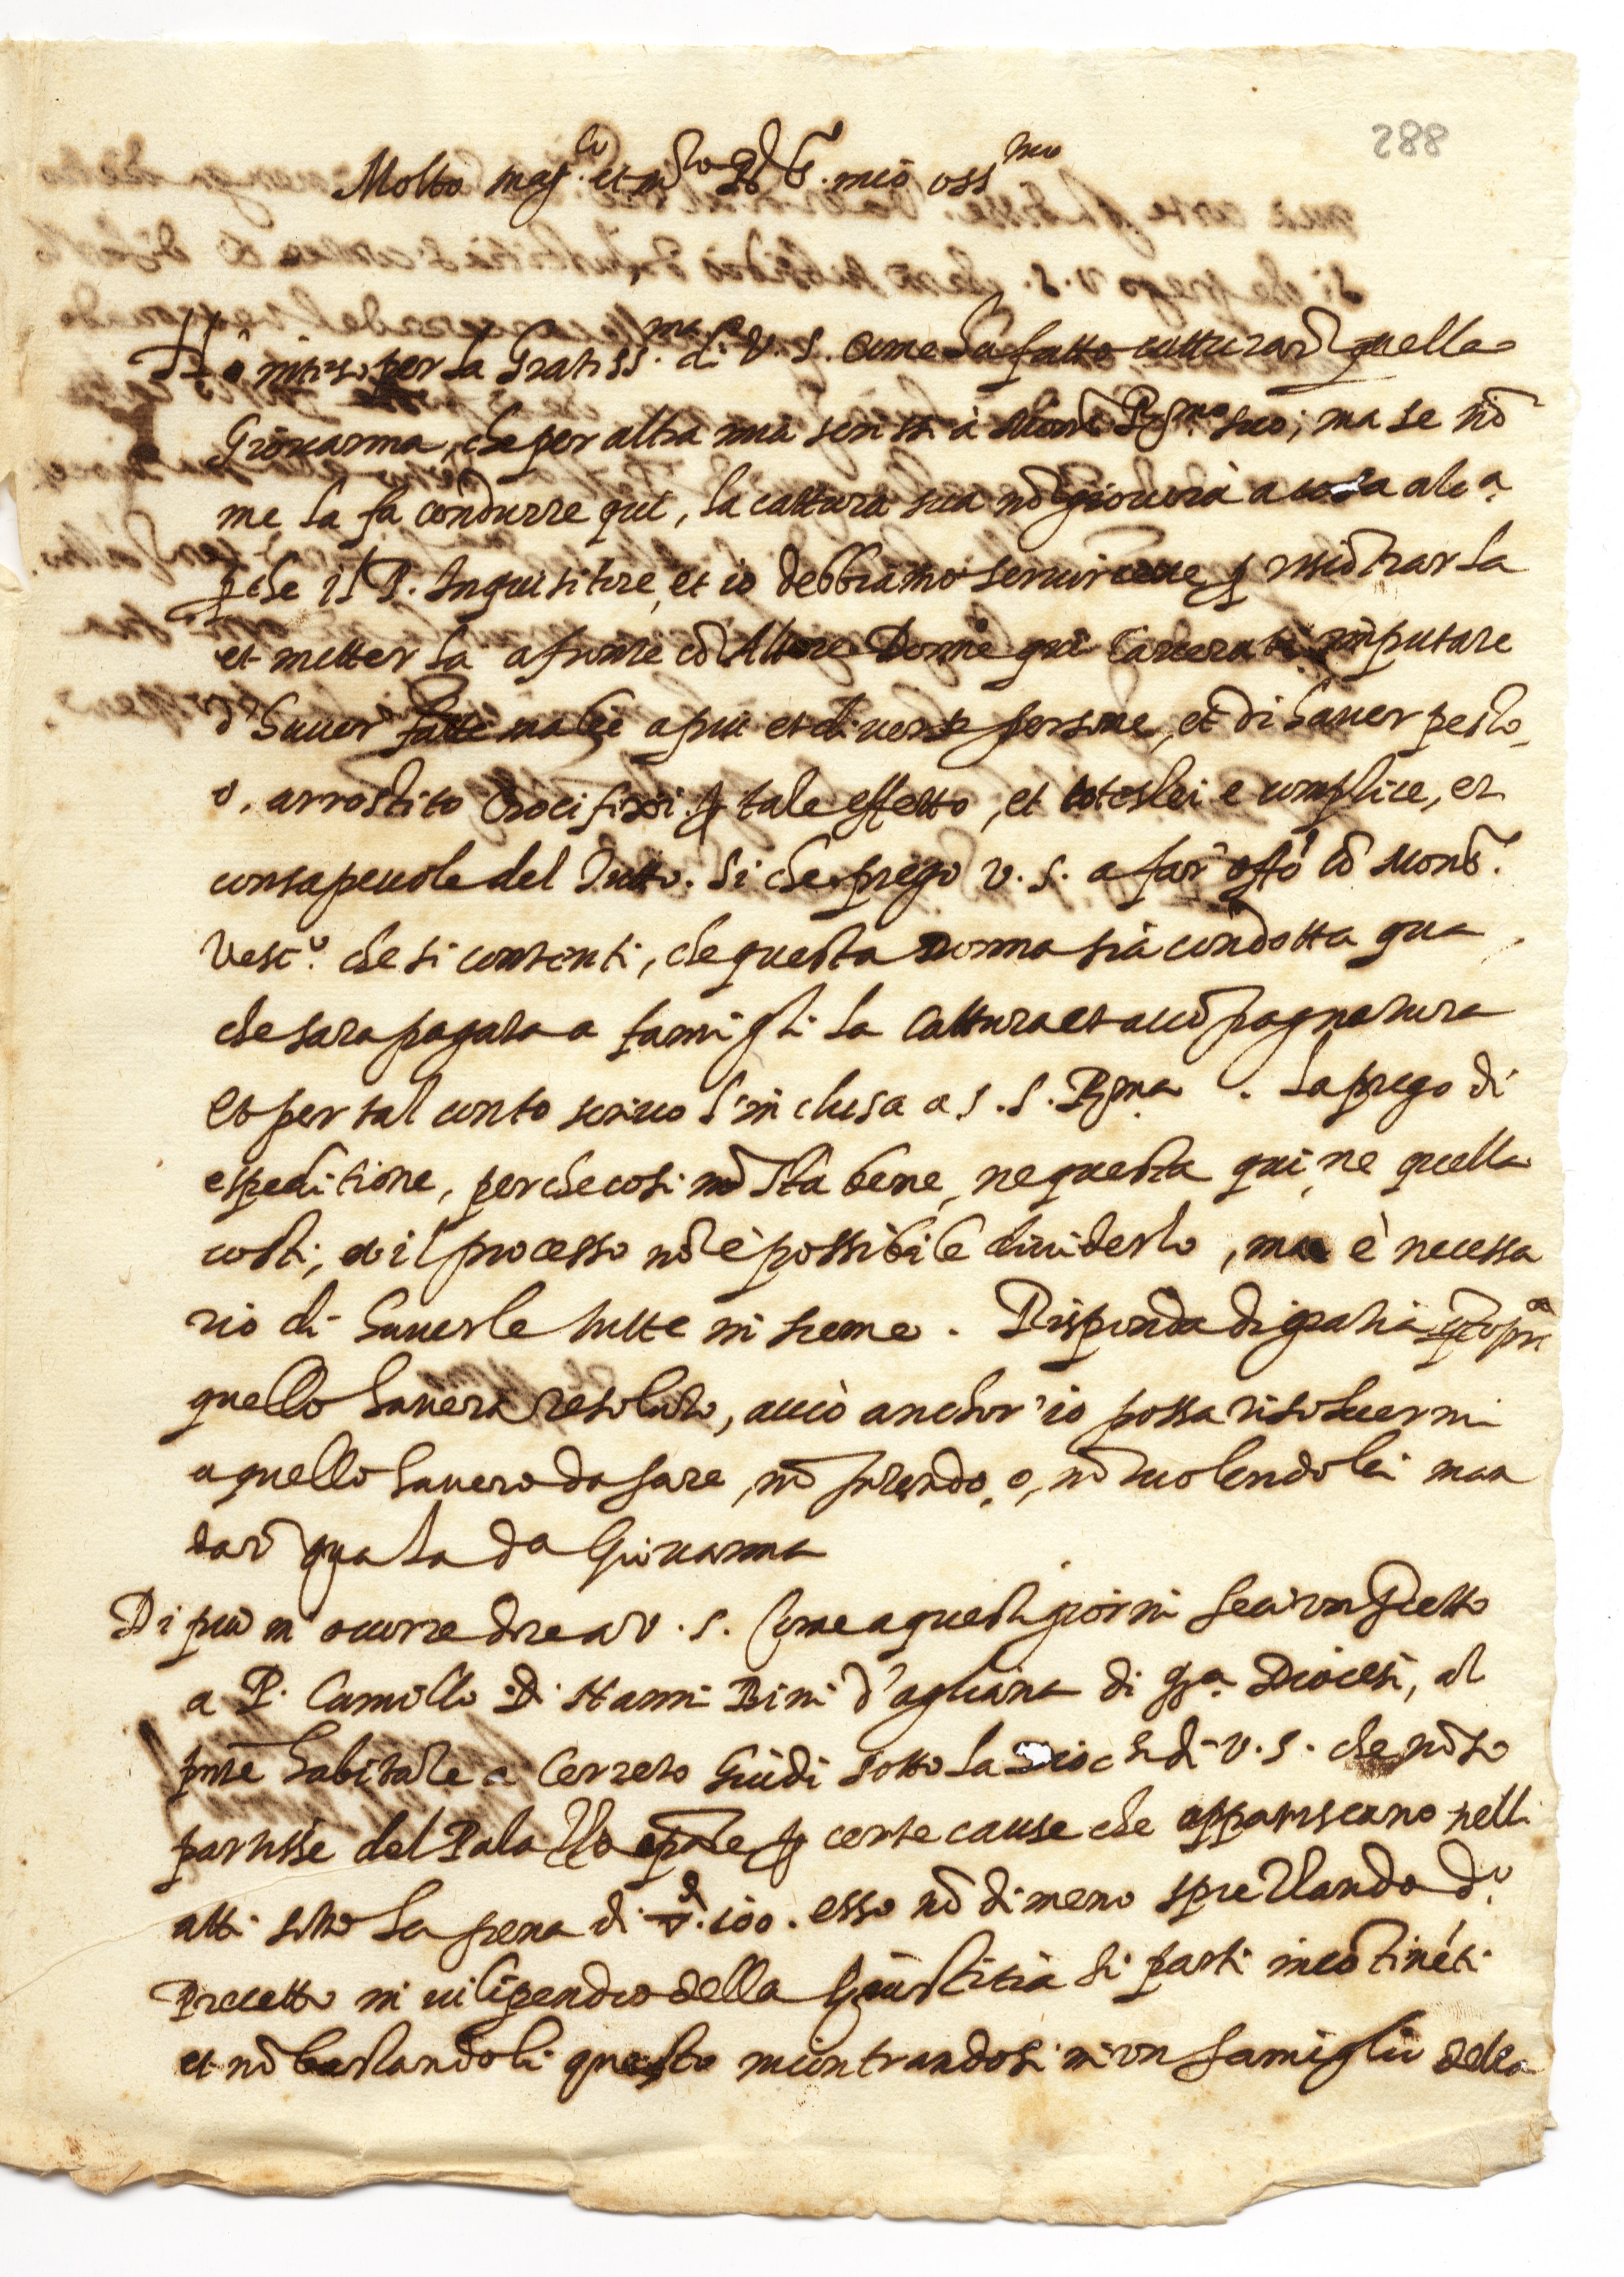 288
Molto mag.co et m.to R.do S.r mio oss.mo
Hò inteso per la Gratiss.ma di V. S. come ha fatto catturar quella
Giovanna, che per altra mia scrissi à Mons.r R.mo suo; ma se nõ
me la fa condurre qui, la cattura sua nõ giovorà a cosa alc.a
p che il P. Inquisitore, et io debbiamo servircene p riscõtrarla
et metterla a fronte cõ Altre Donne qui Carcerate imputate
d'haver fatte malie a piu et diverse persone, et di haver pesto,
o, arrostito Crocifissi p tale effetto, et cotestei e complice, et
consapevole del Tutto. Si che prego V. S. a far offo cõ Mons.r
Vesc.o che si contenti, che questa Donna sia condotta qua
che sara pagata a famigli la Cattura et accõpagnatura
et per tal conto scrivo l'inclusa a S. S. R.ma. La prego di
espeditione, perche cosi nõ sta bene, ne questa qui, ne quella
costi, et il processo nõ è possibile dividerlo, ma è necessa
rio di haverle tutte insieme. Risponda di gratia
quello haverà resoluto, acciò anchor'io possa risolvermi
a quello havero da fare, nõ potendo, o, nõ volendo lei man
dar qua la da Giovanna
Di piu m'occorre dire a V. S. Come a questi giorni feci un Precetto
a P. Camillo di Nanni Bini d'Agliana di q.a Diocesi, al
pñte habitãte a Cerreto Guidi sotto la Dioc.si di V. S. che nõ si
partisse del Palazzo p certe cause che appariscano nelli
atti sotto la pena di 100. esso nõ di meno sprezzando d.o
Precetto in vilipendio della Giustitia si parti incõtinẽti
et nõ bastandoli questo incontrandosi in un famiglio della